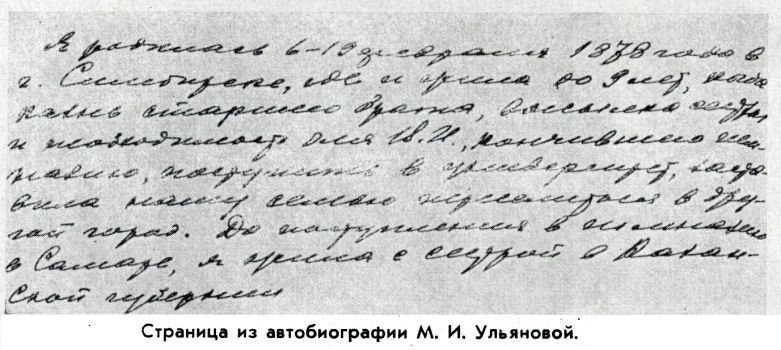 Я родилась 6–19 февраля 1878 года в
г. Симбирске, где и жила до 9 лет, когда
казнь старшего брата, высылка сестры
и необходимость для В. И., кончившего гим-
назию, поступить в университет, заста-
вила нашу семью переселиться в дру-
гой город. До поступления в гимназию
в Самаре, я жила с сестрой в Казан-
ской губернии
Страница из автобиографии М. И. Ульяновой.